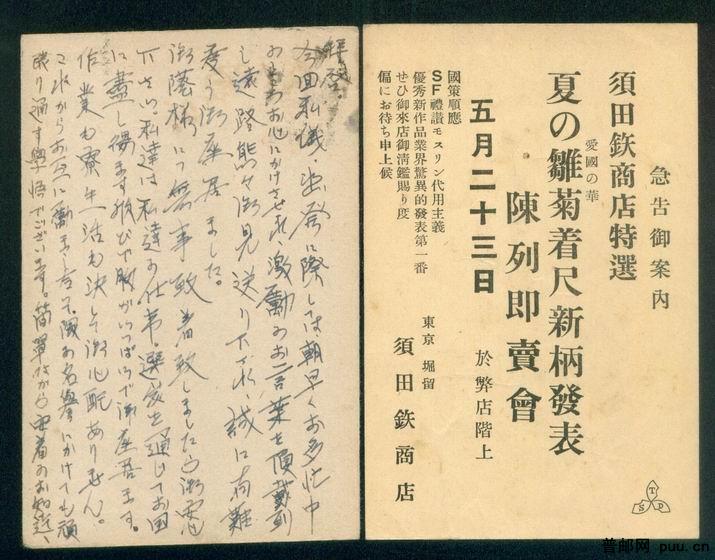 急告御案内
須田鉃商店特選
愛國の華
夏の雛菊着尺新柄發表
陳列即賣會
五月二十三日
於弊店階上
國策順應
SF禮讃モスリン代用主義
優秀新作品業界驚異的發表第一番
せひ御來店御清鑑賜り度
偏にお待ち申上候
東京 堀留
須田鉃商店
T
S P
拝啓、
今回私儀、出発に際しては朝早くお多忙中
お心にかけさせられ激励のお言葉を頂戴
し遠路態々御見送り下され、誠に有難
度う御座居ました。
御蔭様にて無事致着致しました
下さい。私達は私達の仕事、選炭を通じてお国
に盡し得ます
作業も寮生活も決して御心配ありません。
これからお互に励まし合って、隊の名誉にかけても頑
張り通す覚悟でございます。簡単ながら
普邮网 puu.cn